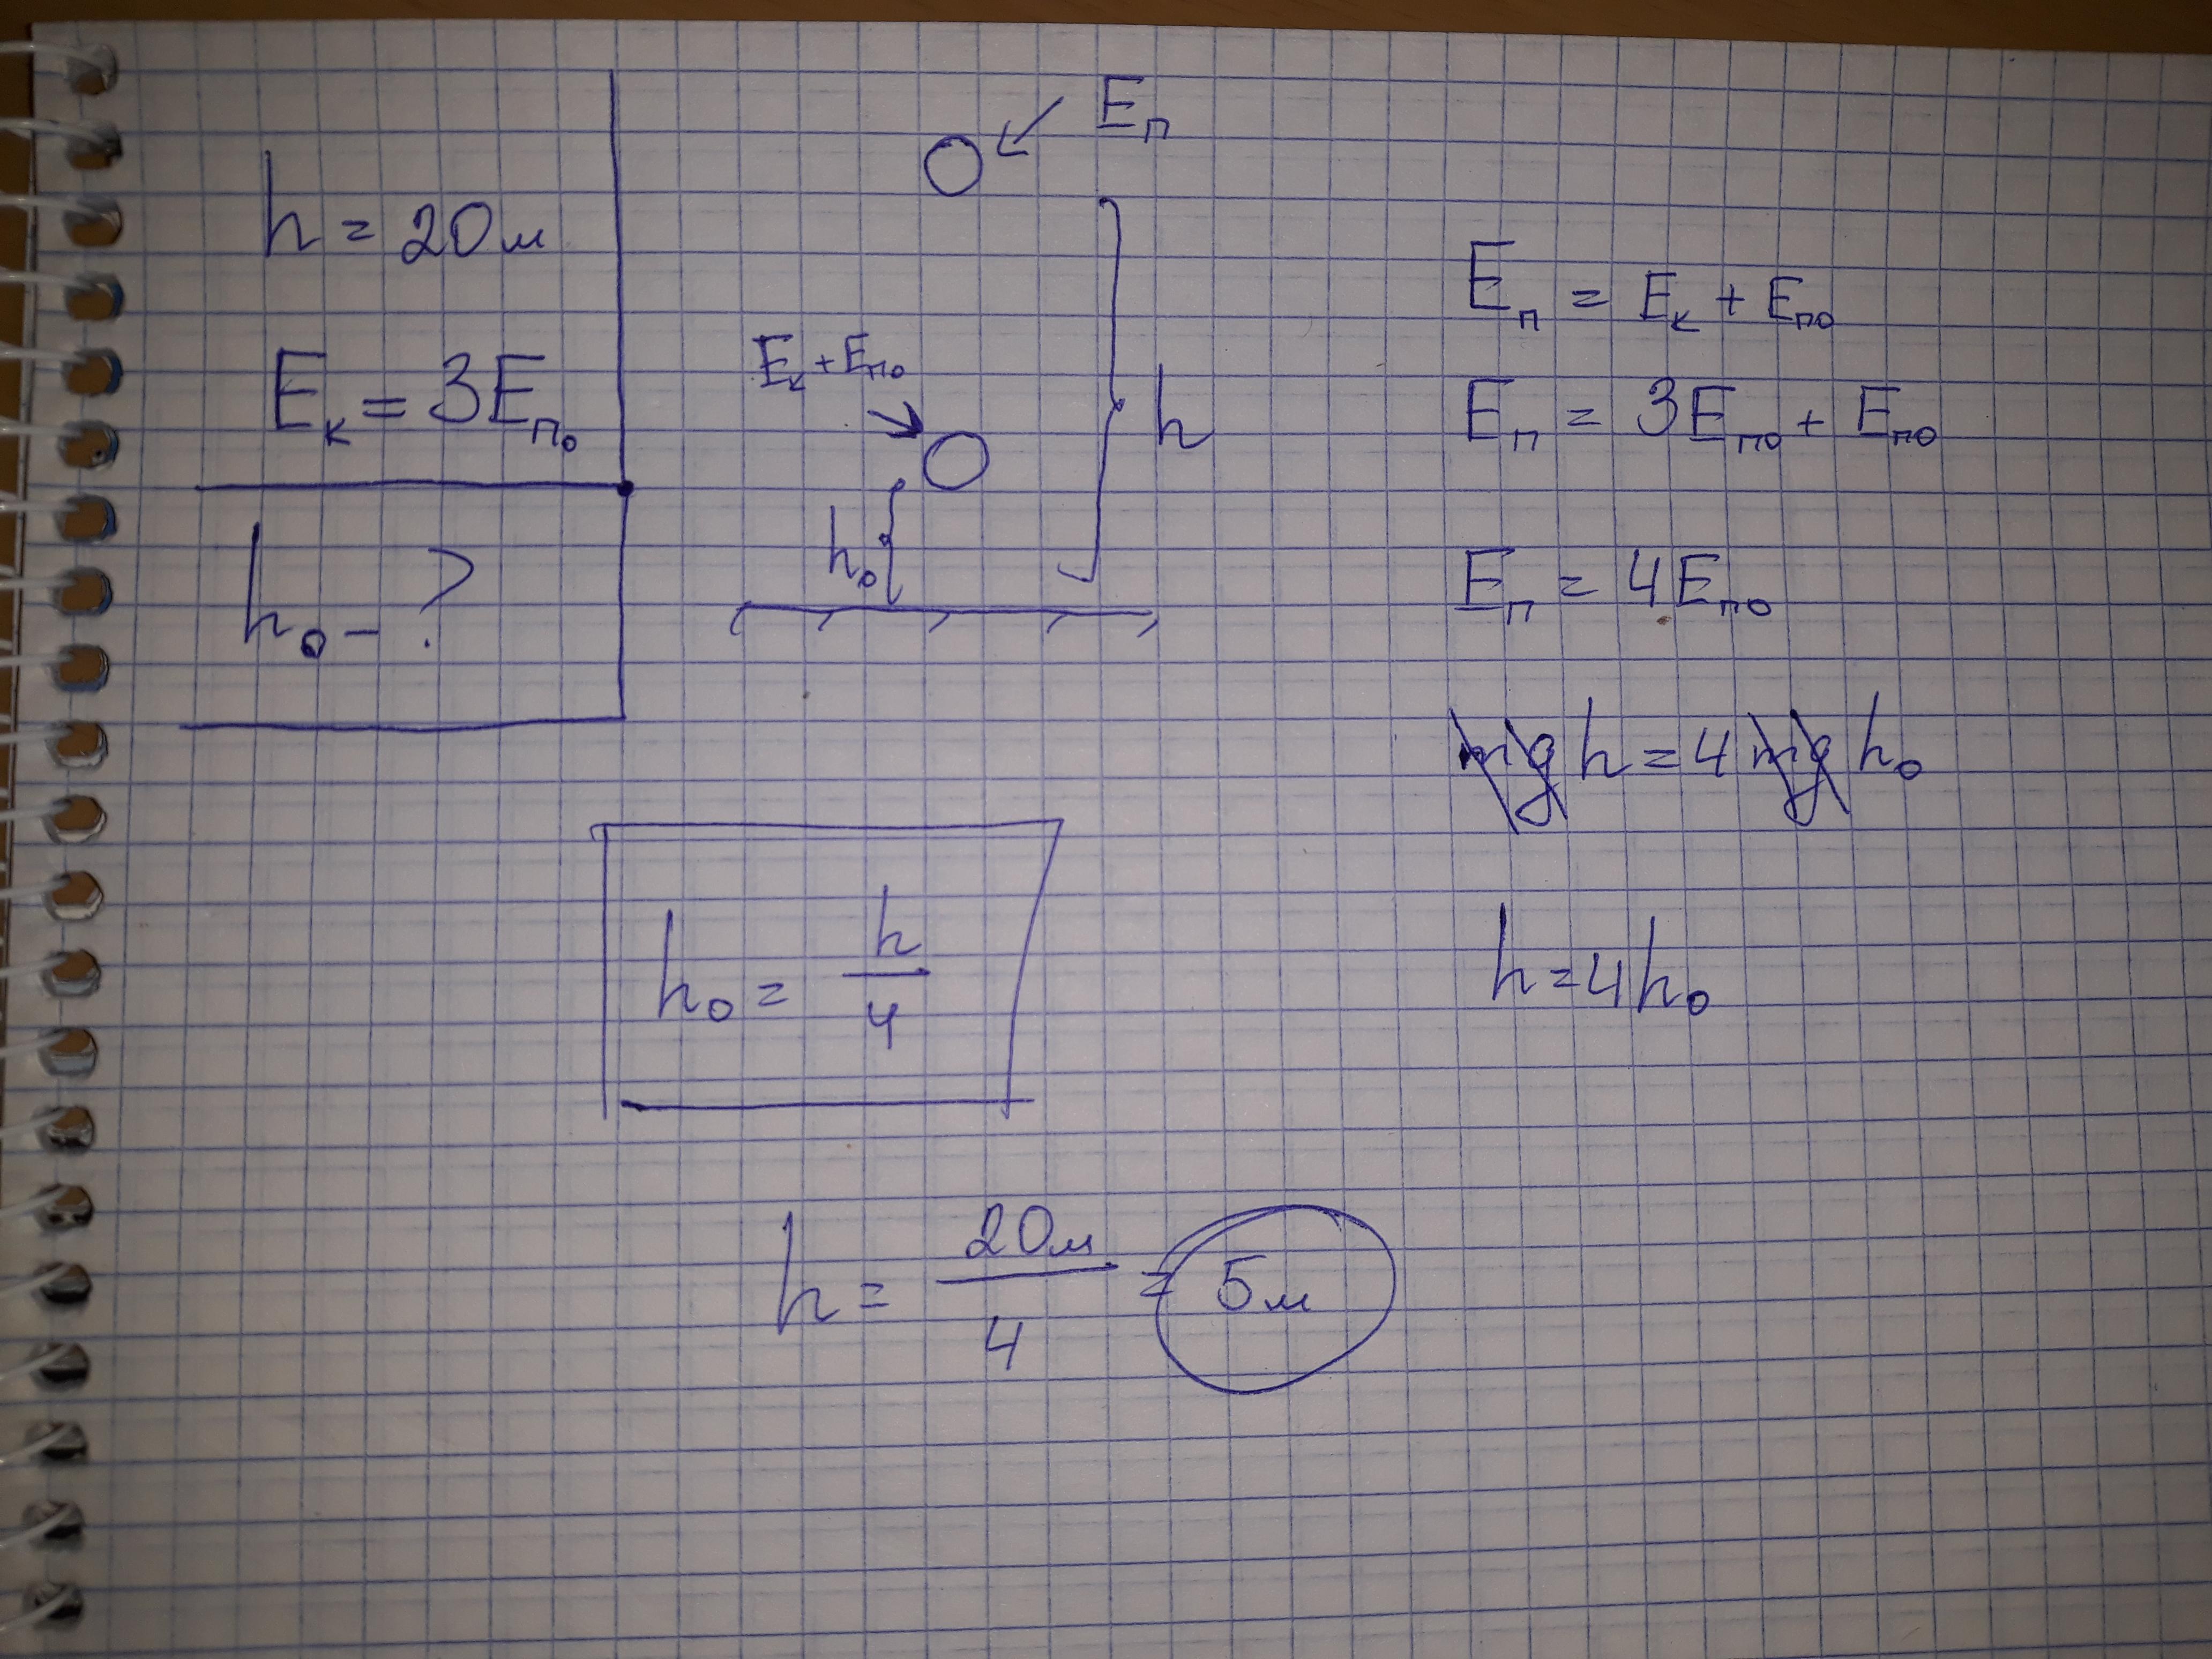 h = 20м
Eк = 3Eп₀
h₀ - ?
Eп
Eк + Eп₀
h
h₀
Eп = Eк + Eп₀
Eп = 3Eп₀ + Eп₀
Eп = 4Eп₀
mgh = 4mgh₀
h = 4h₀
h₀ = h/4
h = 20м/4 = 5м